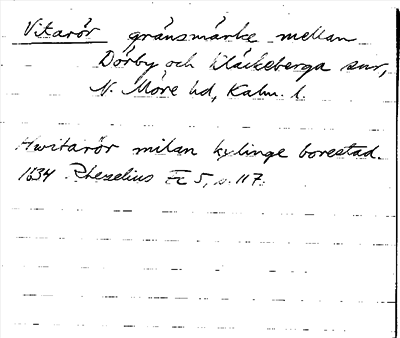 Vitarör gränsmärke mellan
Dörby och Kläckeberga snr,
N. Möre hd, Kalm. l.
Hwitarör milan kylinge borestad.
1634 Rhezelius Fc 5, s. 117.